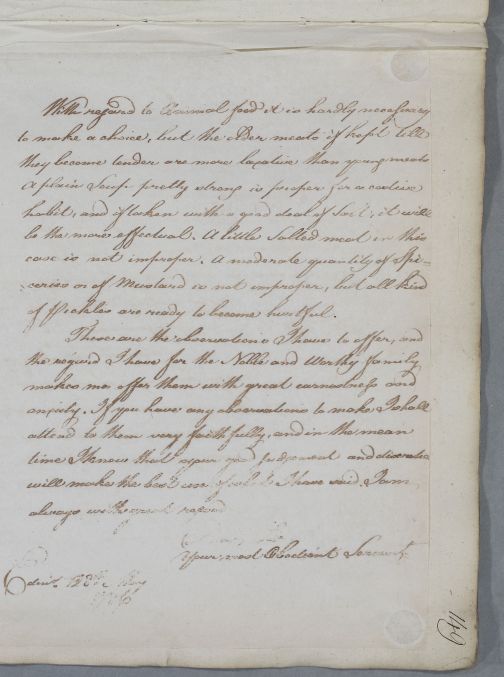 With regard to Animal food it is hardly necessary
to make a choice, but the older meats if kept till
they become tender are more laxative than young meats
A plain Soup pretty strong is proper for a costive
habit, and if taken with a good deal of Salt, it will
be the more effectual. A little Salted meat in this
case is not improper. A moderate quantity of Spi-
ceries or of Mustard is not improper, but all kind
of Pickles are ready to become hurtful.
These are the observations I have to offer, and
the regard I have for the Noble and Worthy family
makes me offer them with great earnestness and
anxiety. If you have any observations to make I shall
attend to them very faithfully, and in the mean
time I know that your good judgement and discretion
will make the best use of what I have said. I am
always with great regard
Your most Obedient Servant
Edinr.
149